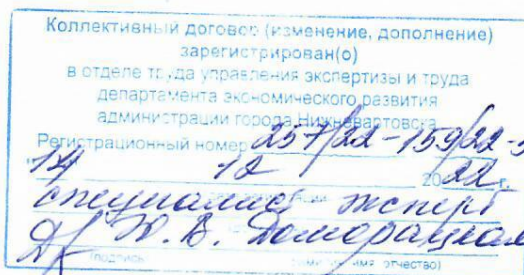 Коллективный договор (изменение, дополнение)
зарегистрирован(о)
в отделе труда управления экспертизы и труда
департамента экономического развития
администрации города Нижневартовска
Регистрационный номер 257/22-159/22-3
"14 12 2022 г.
специалист эксперт
Ю. В. Доморацкая
(подпись (фамилия, имя, отчество)